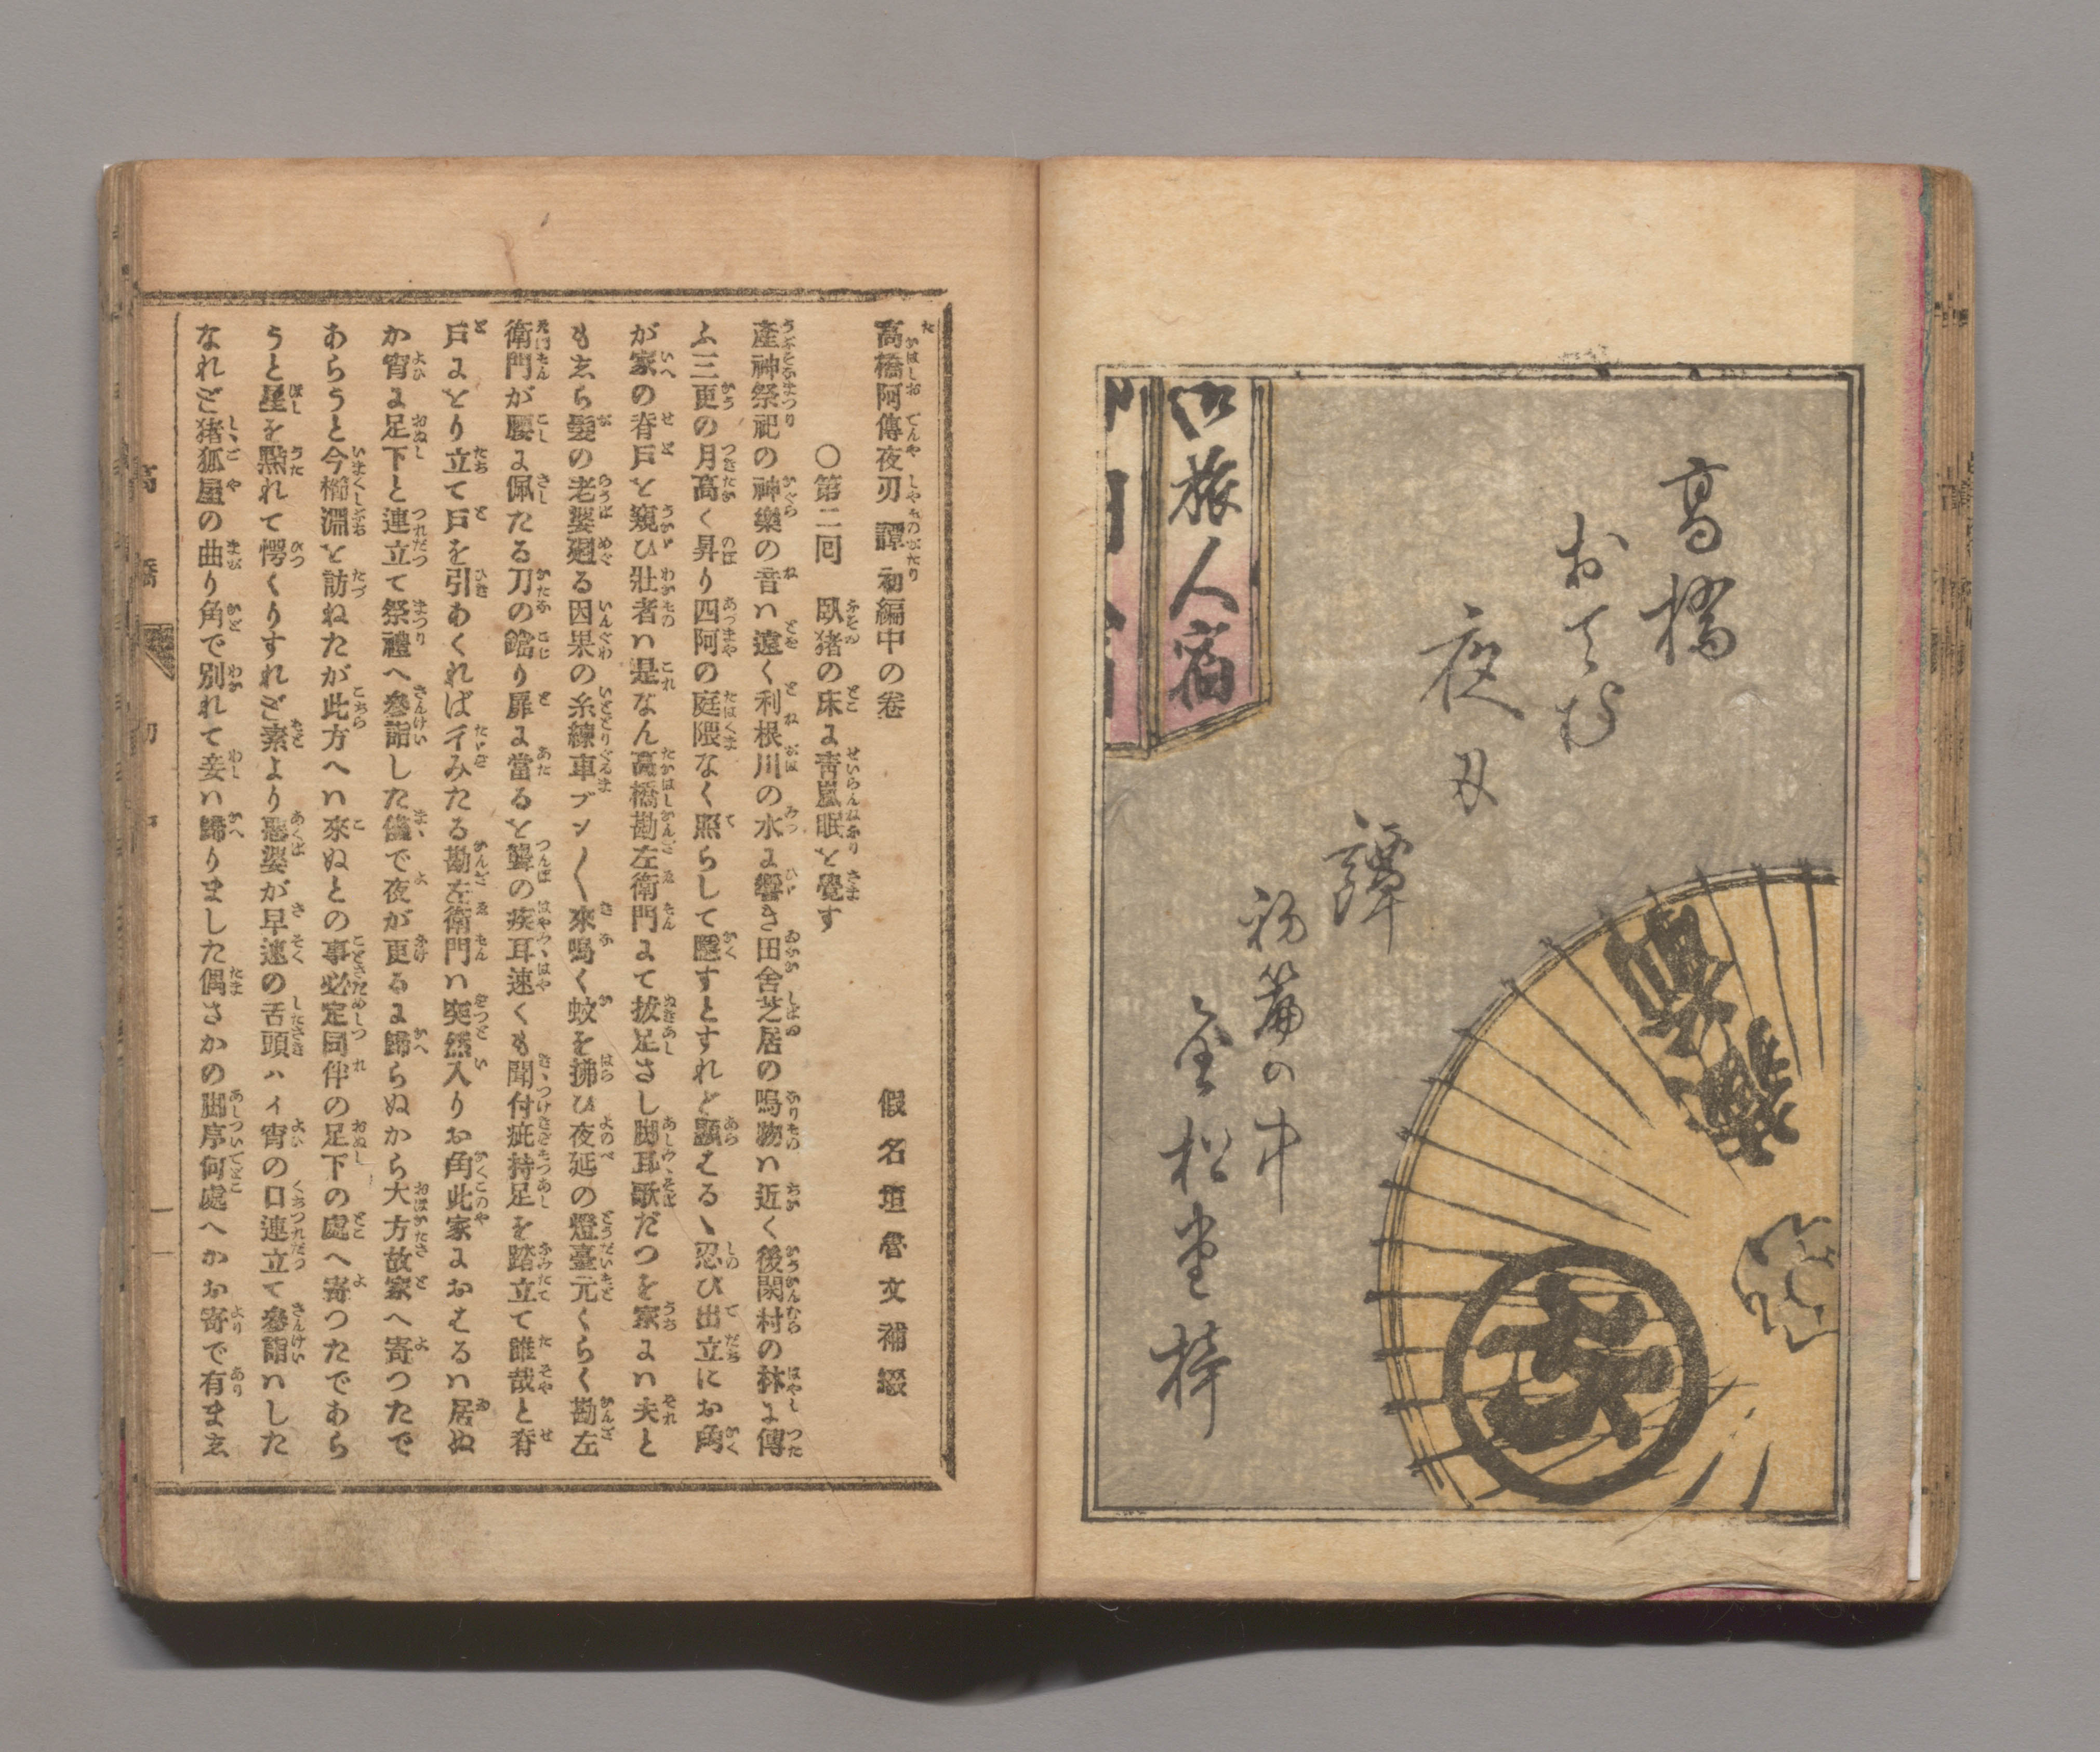 高橋
おでん
夜刄
譚
初篇の中
金松堂梓
御旅人宿
高橋阿傳夜刃譚初編中の卷
假名垣魯文補綴
○第二囘　臥猪の床に靑嵐眠を覺す
產神祭祀の神樂の音ハ遠く利根川の水に響き田舍芝居の鳴物ハ近く後閑村の林に傳
ふ三更の月高く昇り四阿の庭隈なく照らして隱すとすれど顯はるゝ忍び出立にお角
が家の脊戸を窺ひ壯者ハ是なん高橋勘左衛門にて拔足さし脚耳歌だつを家にハ夫と
もゑら髮の老婆廻る因果の糸繰車ブン〱來鳴く蚊を拂ひ夜延の燈臺元くらく勘左
衛門が腰に佩たる刀の鐺り扉に當ると聾の疾耳速くも聞付疵持足を踏立て誰哉と脊
戸にとり立て戸を引あくれば彳みたる勘左衛門ハ突然入りお角此家におはるハ居ぬ
か宵に足下と連立て祭禮へ參詣した儘で夜が更るに歸らぬから大方故家へ寄つたで
あらうと今櫛淵を訪ねたが此方へハ來ぬとの事必定同伴の足下の處へ寄つたであら
うと星を點れて愕くりすれど素より惡婆が早速の舌頭ハイ宵の口連立て參詣ハした
なれど猪狐屋の曲り角で別れて妾ハ歸りました偶さかの脚序何處へかお寄で有まゑ